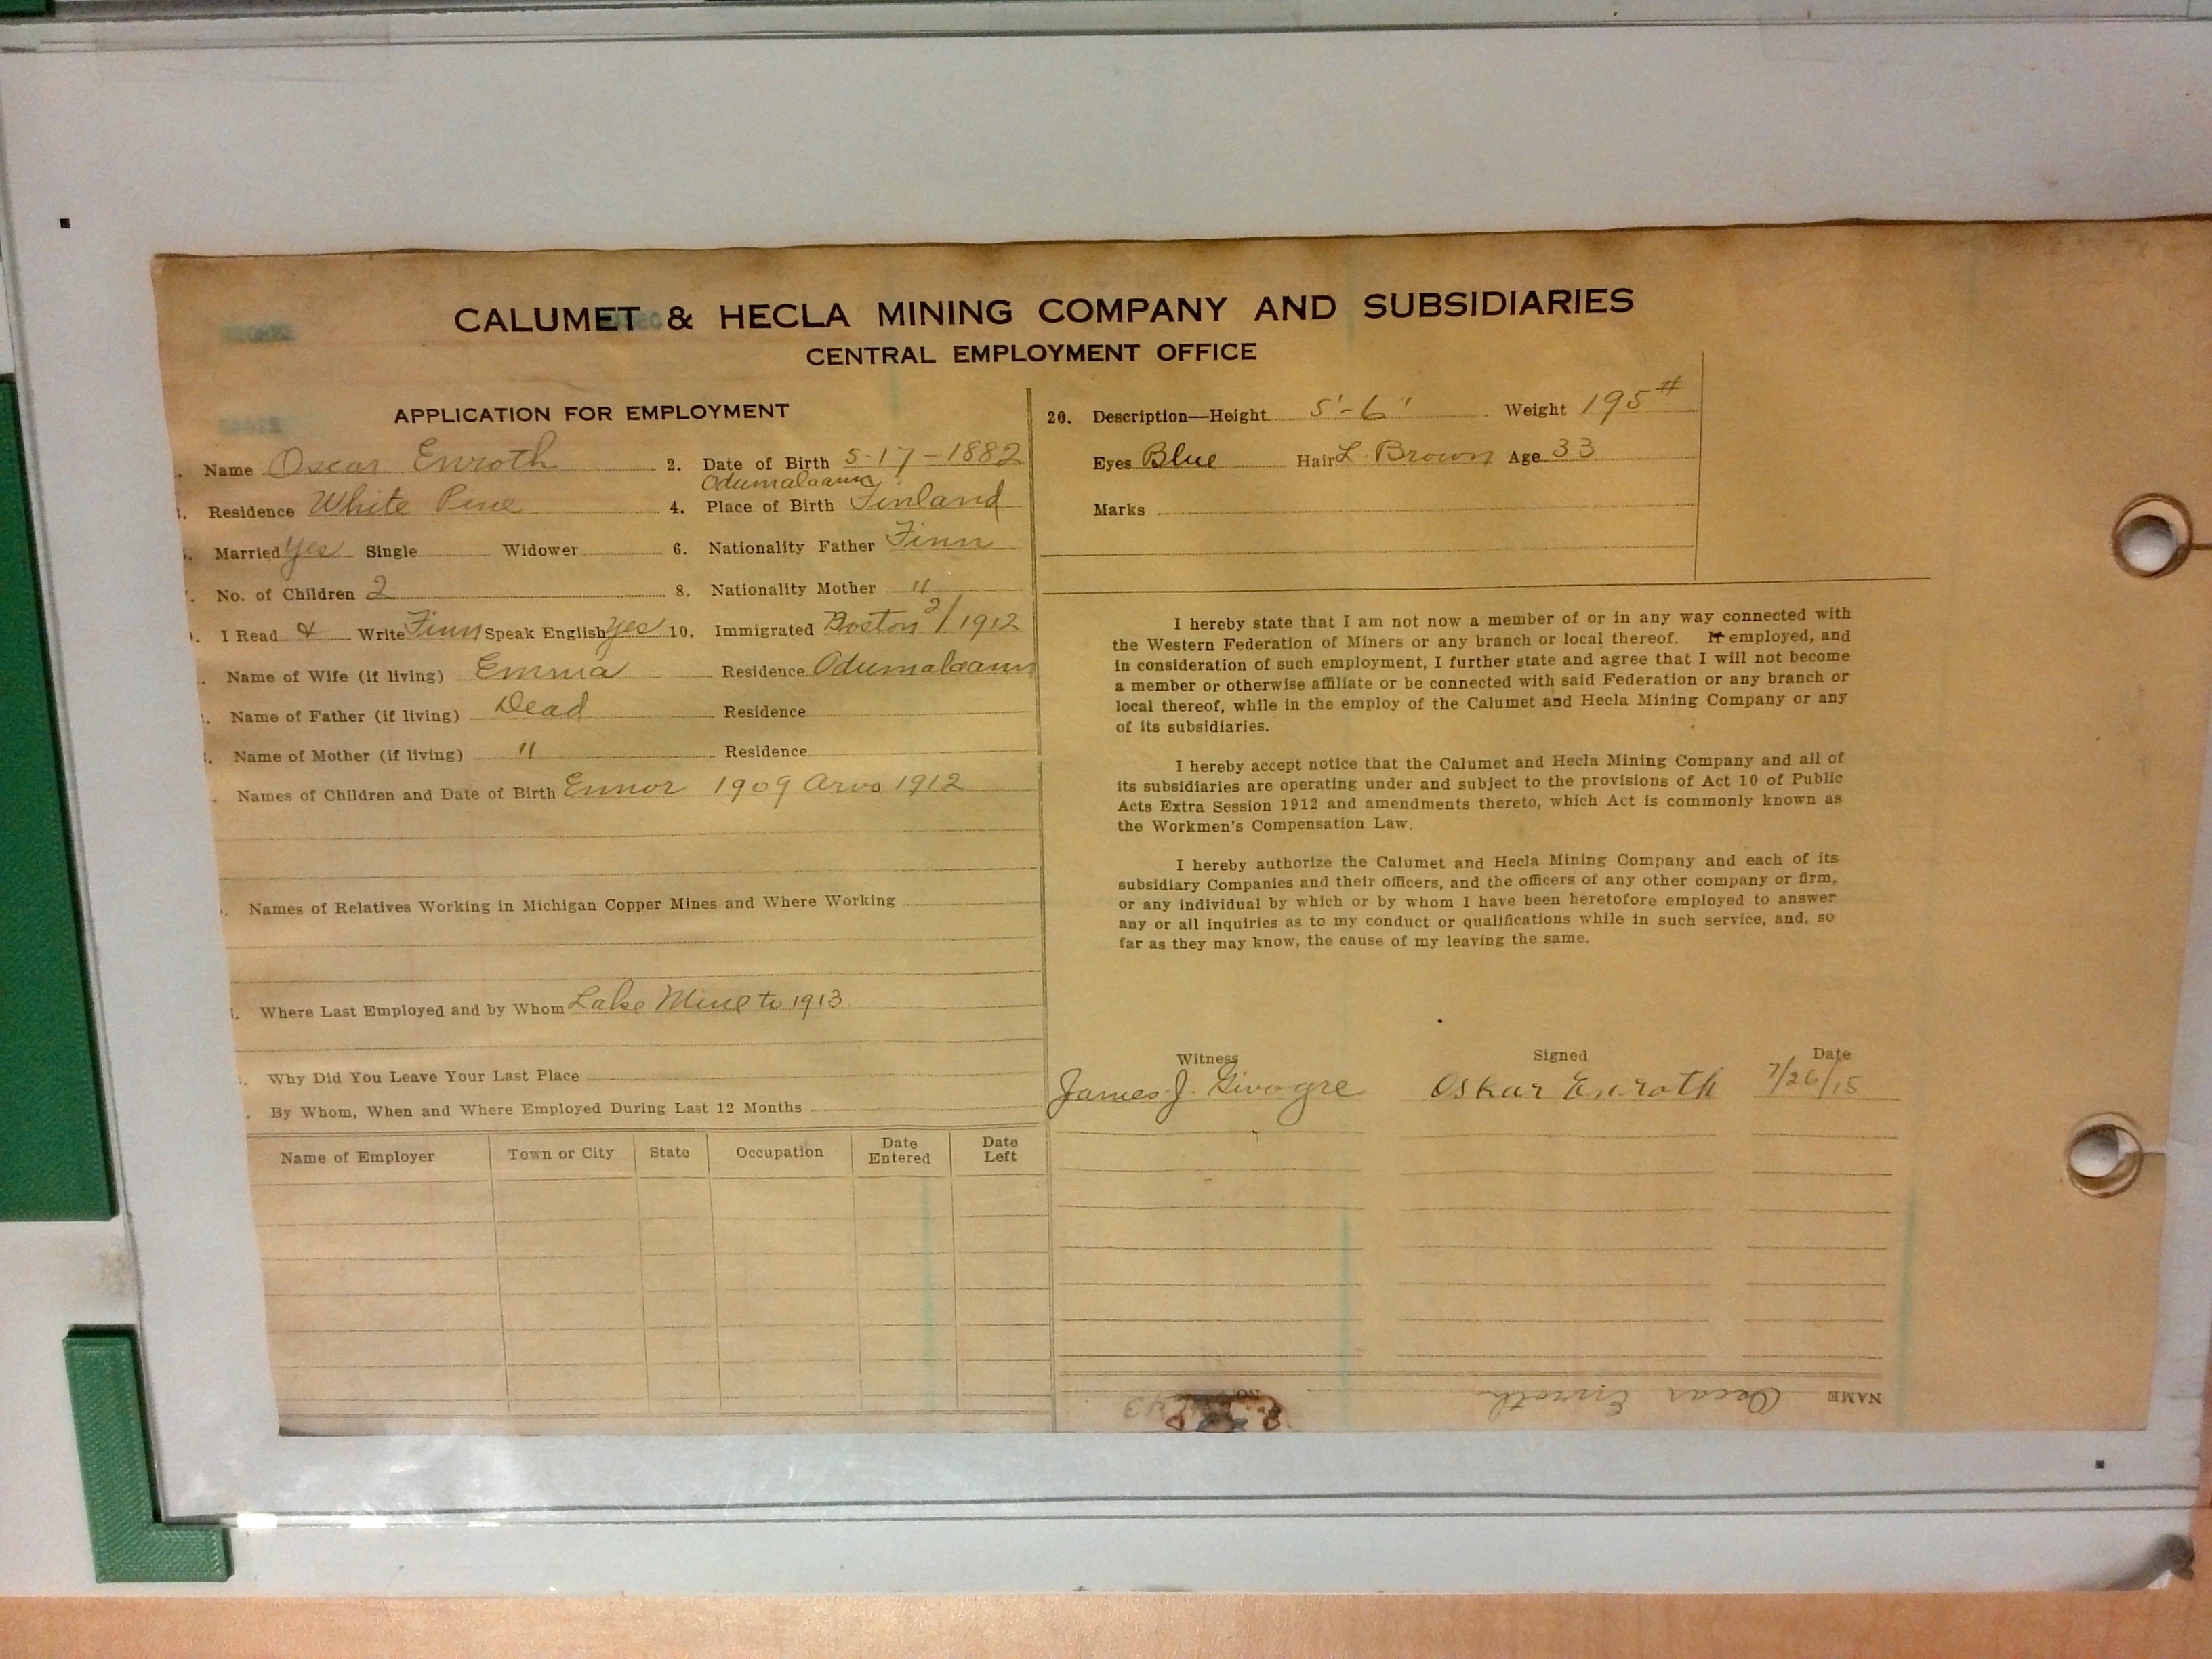 CALUMET & HECLA MINING COMPANY AND SUBSIDIARIES
CENTRAL EMPLOYMENT OFFICE
APPLICATION FOR EMPLOYMENT
Name Oscar Enroth 2. Date of Birth 5-17-1882
Odumalaann
Residence White Pine 4. Place of Birth Finland
Married Yes Single Widower 6. Nationality Father Finn
No. of Children 2 8. Nationality Mother "
I Read & Write Finn Speak English Yes 10. Immigrated Boston 2/1912
Name of Wife (if living) Emma Residence Odumalaann
Name of Father (if living) Dead Residence
Name of Mother (if living) " Residence
Names of Children and Date of Birth Ennor 1909 Arvo 1912
Names of Relatives Working in Michigan Copper Mines and Where Working
Where Last Employed and by Whom Lake Mine to 1913
Why Did You Leave Your Last Place
By Whom, When and Where Employed During Last 12 Months
Name of Employer Town or City State Occupation Date Entered Date Left
20. Description—Height 5'-6" Weight 195#
Eyes Blue Hair L. Brown Age 33
Marks
I hereby state that I am not now a member of or in any way connected with
the Western Federation of Miners or any branch or local thereof. If employed, and
in consideration of such employment, I further state and agree that I will not become
a member or otherwise affiliate or be connected with said Federation or any branch or
local thereof, while in the employ of the Calumet and Hecla Mining Company or any
of its subsidiaries.
I hereby accept notice that the Calumet and Hecla Mining Company and all of
its subsidiaries are operating under and subject to the provisions of Act 10 of Public
Acts Extra Session 1912 and amendments thereto, which Act is commonly known as
the Workmen's Compensation Law.
I hereby authorize the Calumet and Hecla Mining Company and each of its
subsidiary Companies and their officers, and the officers of any other company or firm,
or any individual by which or by whom I have been heretofore employed to answer
any or all inquiries as to my conduct or qualifications while in such service, and, so
far as they may know, the cause of my leaving the same.
Witness Signed Date
James J. Oskar Enroth 7/26/15
NAME Oscar Enroth NO.